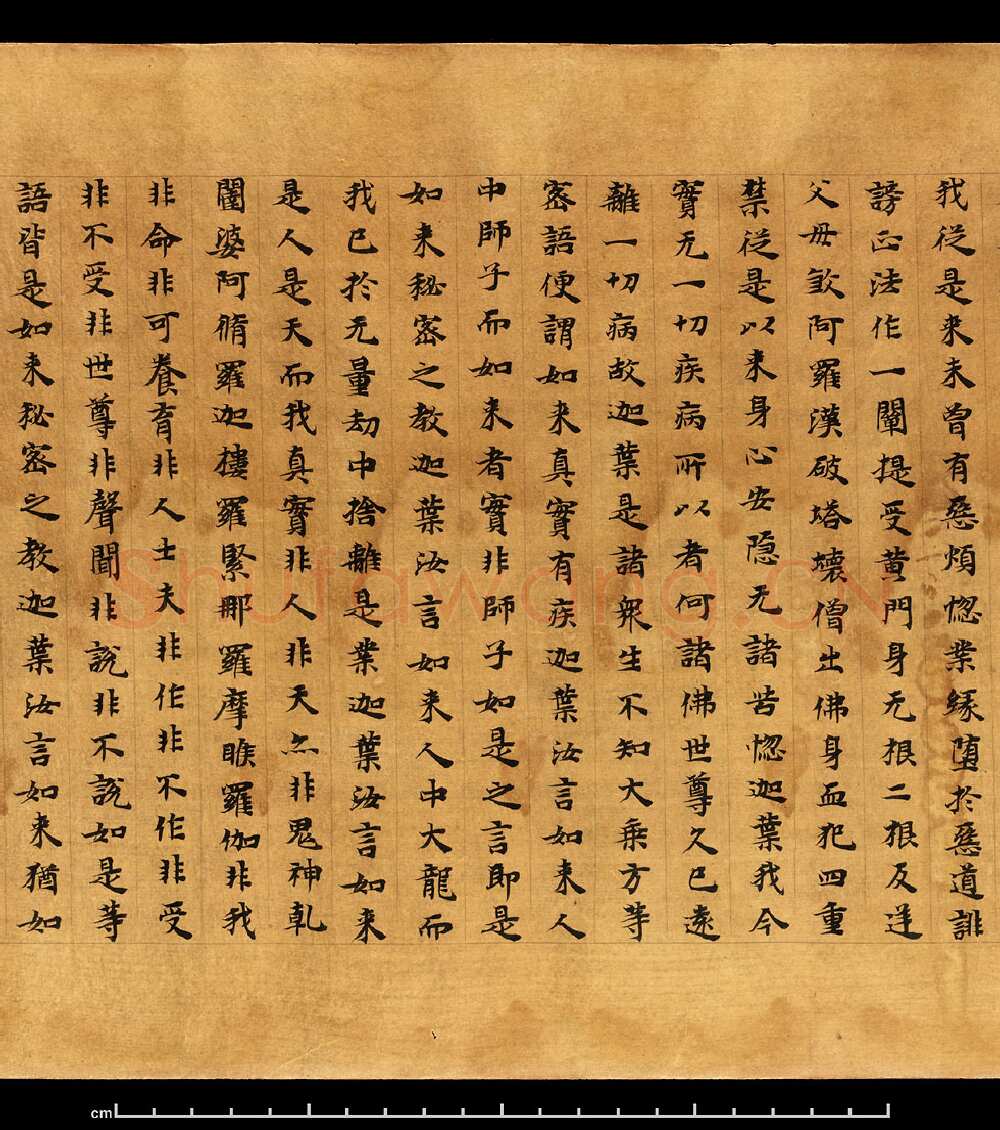 我從是来未曽有惡煩惚業緣堕扵惡道誹
謗正法作一闡提受黄門身无根二根及逆
父母㱩阿羅漢破塔壊僧出佛身血犯四重
禁從是以来身心安隐无諸苦惚迦葉我今
實无一切疾病所以者何諸佛世尊久已遠
離一切病故迦葉是諸衆生不知大乗方等
宻語便謂如来真實有疾迦葉汝言如来人
中師子而如来者實非師子如是之言即是
如来秘宻之教迦葉汝言如来人中大龍而
我已扵无量劫中捨離是業迦葉汝言如来
是人是天而我真實非人非天亦非鬼神乹
闥婆阿脩羅迦樓羅緊那羅摩睺羅伽非我
非命非可養育非人士夫非作非不作非受
非不受非世尊非聲聞非說非不說如是等
語皆是如来秘宻之教迦葉汝言如来猶如
Shufawang.CN
cm